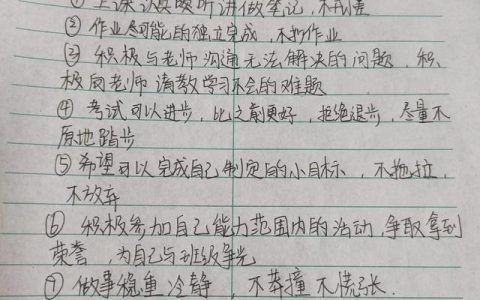 ① 上课认真听讲做笔记，不开小差
② 作业尽可能的独立完成，不抄作业
③ 积极与老师沟通无法解决的问题，积
极向老师请教学习不会的难题
④ 考试可以进步，比之前更好，拒绝退步，尽量不
原地踏步
⑤ 希望可以完成自己制定的小目标，不拖拉，
不放弃
⑥ 积极参加自己能力范围内的活动，争取拿到
荣誉，为自己与班级争光
⑦ 做事稳重冷静，不莽撞不慌张.